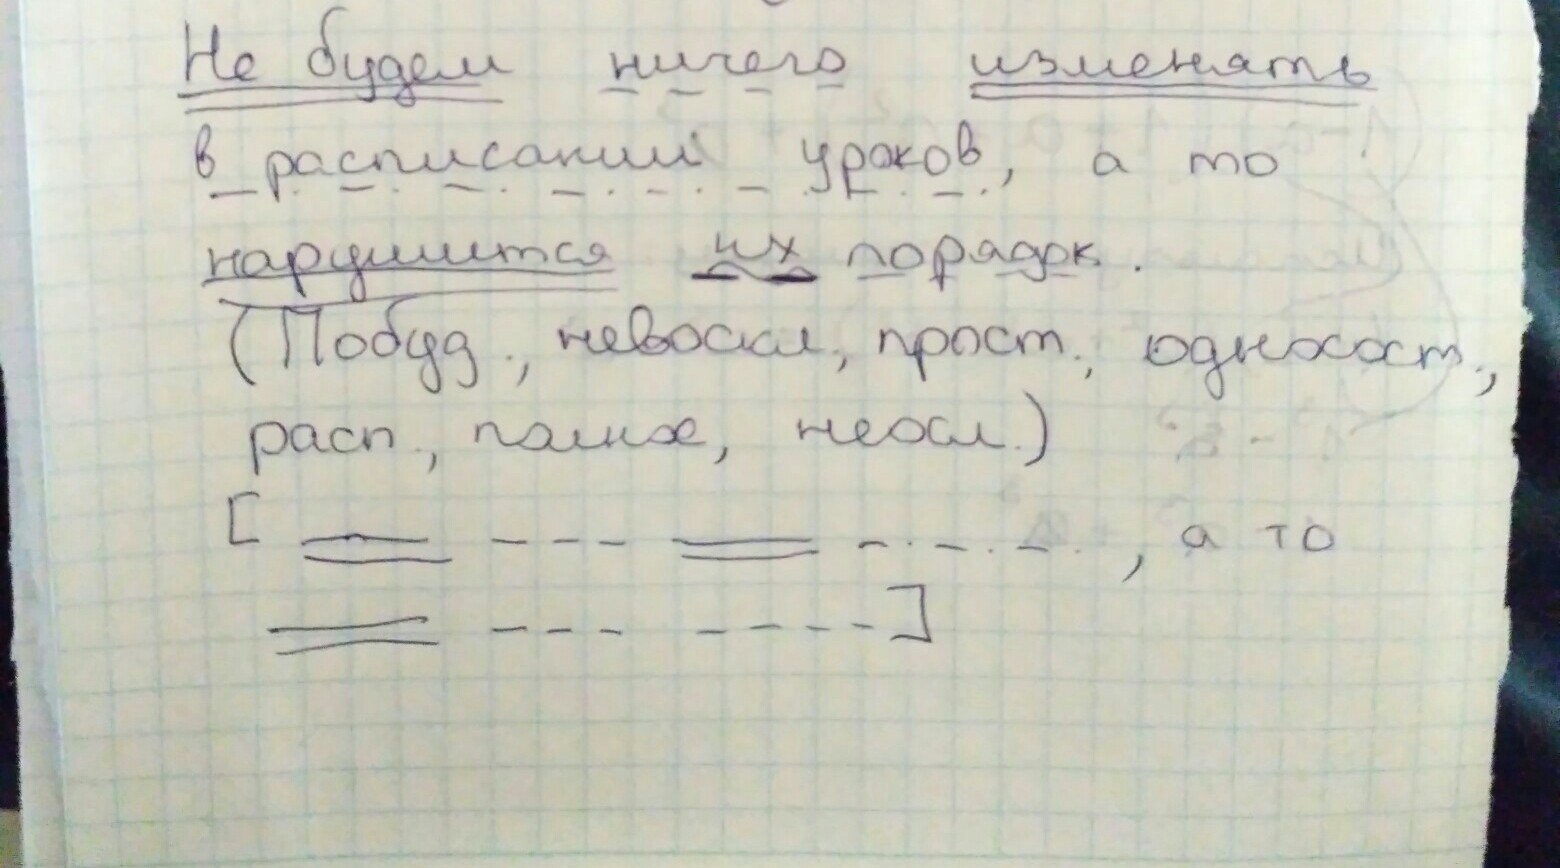 Не будем ничего изменять
в расписании уроков, а то
нарушится их порядок.
(Побуд., невоскл., прост., односост.,
расп., полное, неосл.)
[ , а то
]